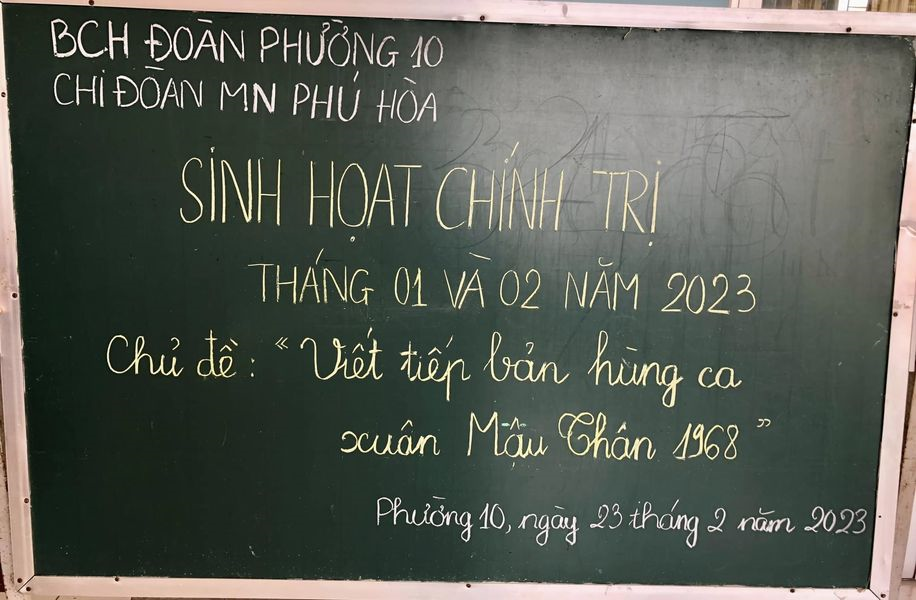 BCH ĐOÀN PHƯỜNG 10
CHI ĐOÀN MN PHÚ HÒA
SINH HOẠT CHÍNH TRỊ
THÁNG 01 VÀ 02 NĂM 2023
Chủ đề: “Viết tiếp bản hùng ca
xuân Mậu Thân 1968”
Phường 10, ngày 23 tháng 2 năm 2023